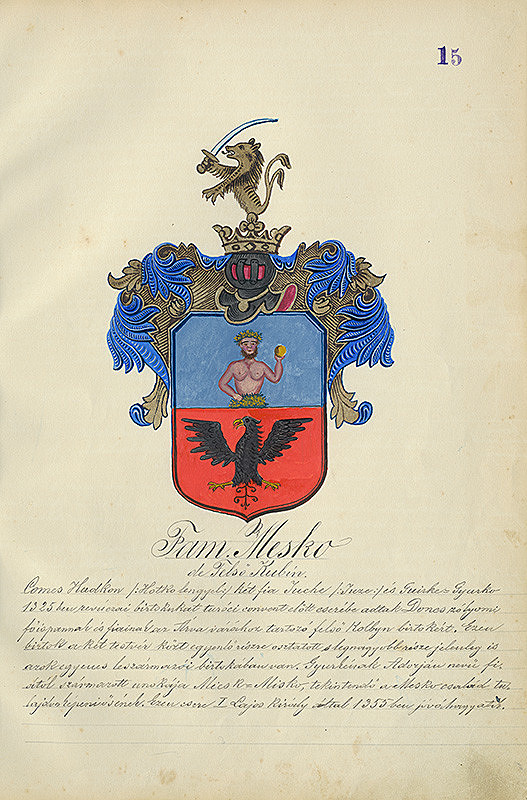 15
Fam. Mesko
de Felső Kubin.
Comes Hudkon /:Hotko lengyel:/ két fia Juche /:Juze:/ és Guirke=Gyurko
1325 ben revuczai birtokukat turóci convent előt cserébe adtak Doncs zólyomi
főispannak és fiainak, az Arva várához tartozó felső Kolbyn birtokért. Ezen
birtok a két testvér közt egyenlő részre osztatott s legnagyobb része jelenleg is
azok egyenes leszármazói birtokában van. Gyurkénak Adorján nevű fi-
ától származott unokája Mécsk=Miskó, tekintendő a Mesko család tu-
lajdonképeni ősének. Ezen csere I. Lajos király által 1355 ben jóváhagyatik.